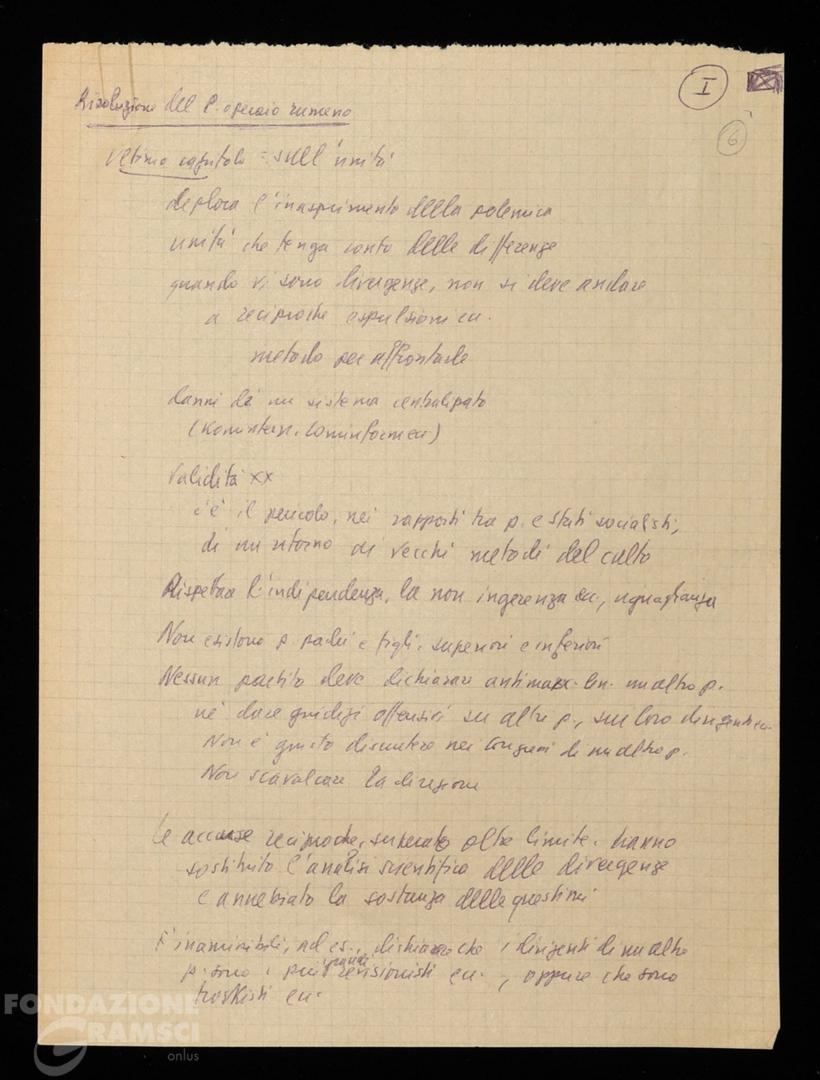 I
6
Risoluzione del P. operaio rumeno
Ultimo capitolo = sull'unità
deplora l'inasprimento della polemica
unità che tenga conto delle differenze
quando vi sono divergenze, non si deve andare
a reciproche espulsioni ecc.
metodo per affrontarle
danni di un sistema centralizzato
(Komintern. Cominform ecc)
Validità xx
c'è il pericolo, nei rapporti tra p. e stati socialisti,
di un ritorno ai vecchi metodi del culto
Rispettare l'indipendenza, la non ingerenza ecc, uguaglianza
Non esistono p. padri e figli, superiori e inferiori
Nessun partito deve dichiarare antimarx-len. un altro p.
né dare giudizi offensivi su altre p., sui loro dirigenti ecc.
Non è giusto discutere nei congressi di un altro p.
Non scavalcare la direzione
Le accuse reciproche, superato oltre limite. hanno
sostituito l'analisi scientifica delle divergenze
e annebiato la sostanza delle questioni
E' inammissibile, ad es., dichiarare che i dirigenti di un altro
p. sono i più grandi revisionisti ecc., oppure che sono
troskisti ecc.
FONDAZIONE
GRAMSCI
onlus